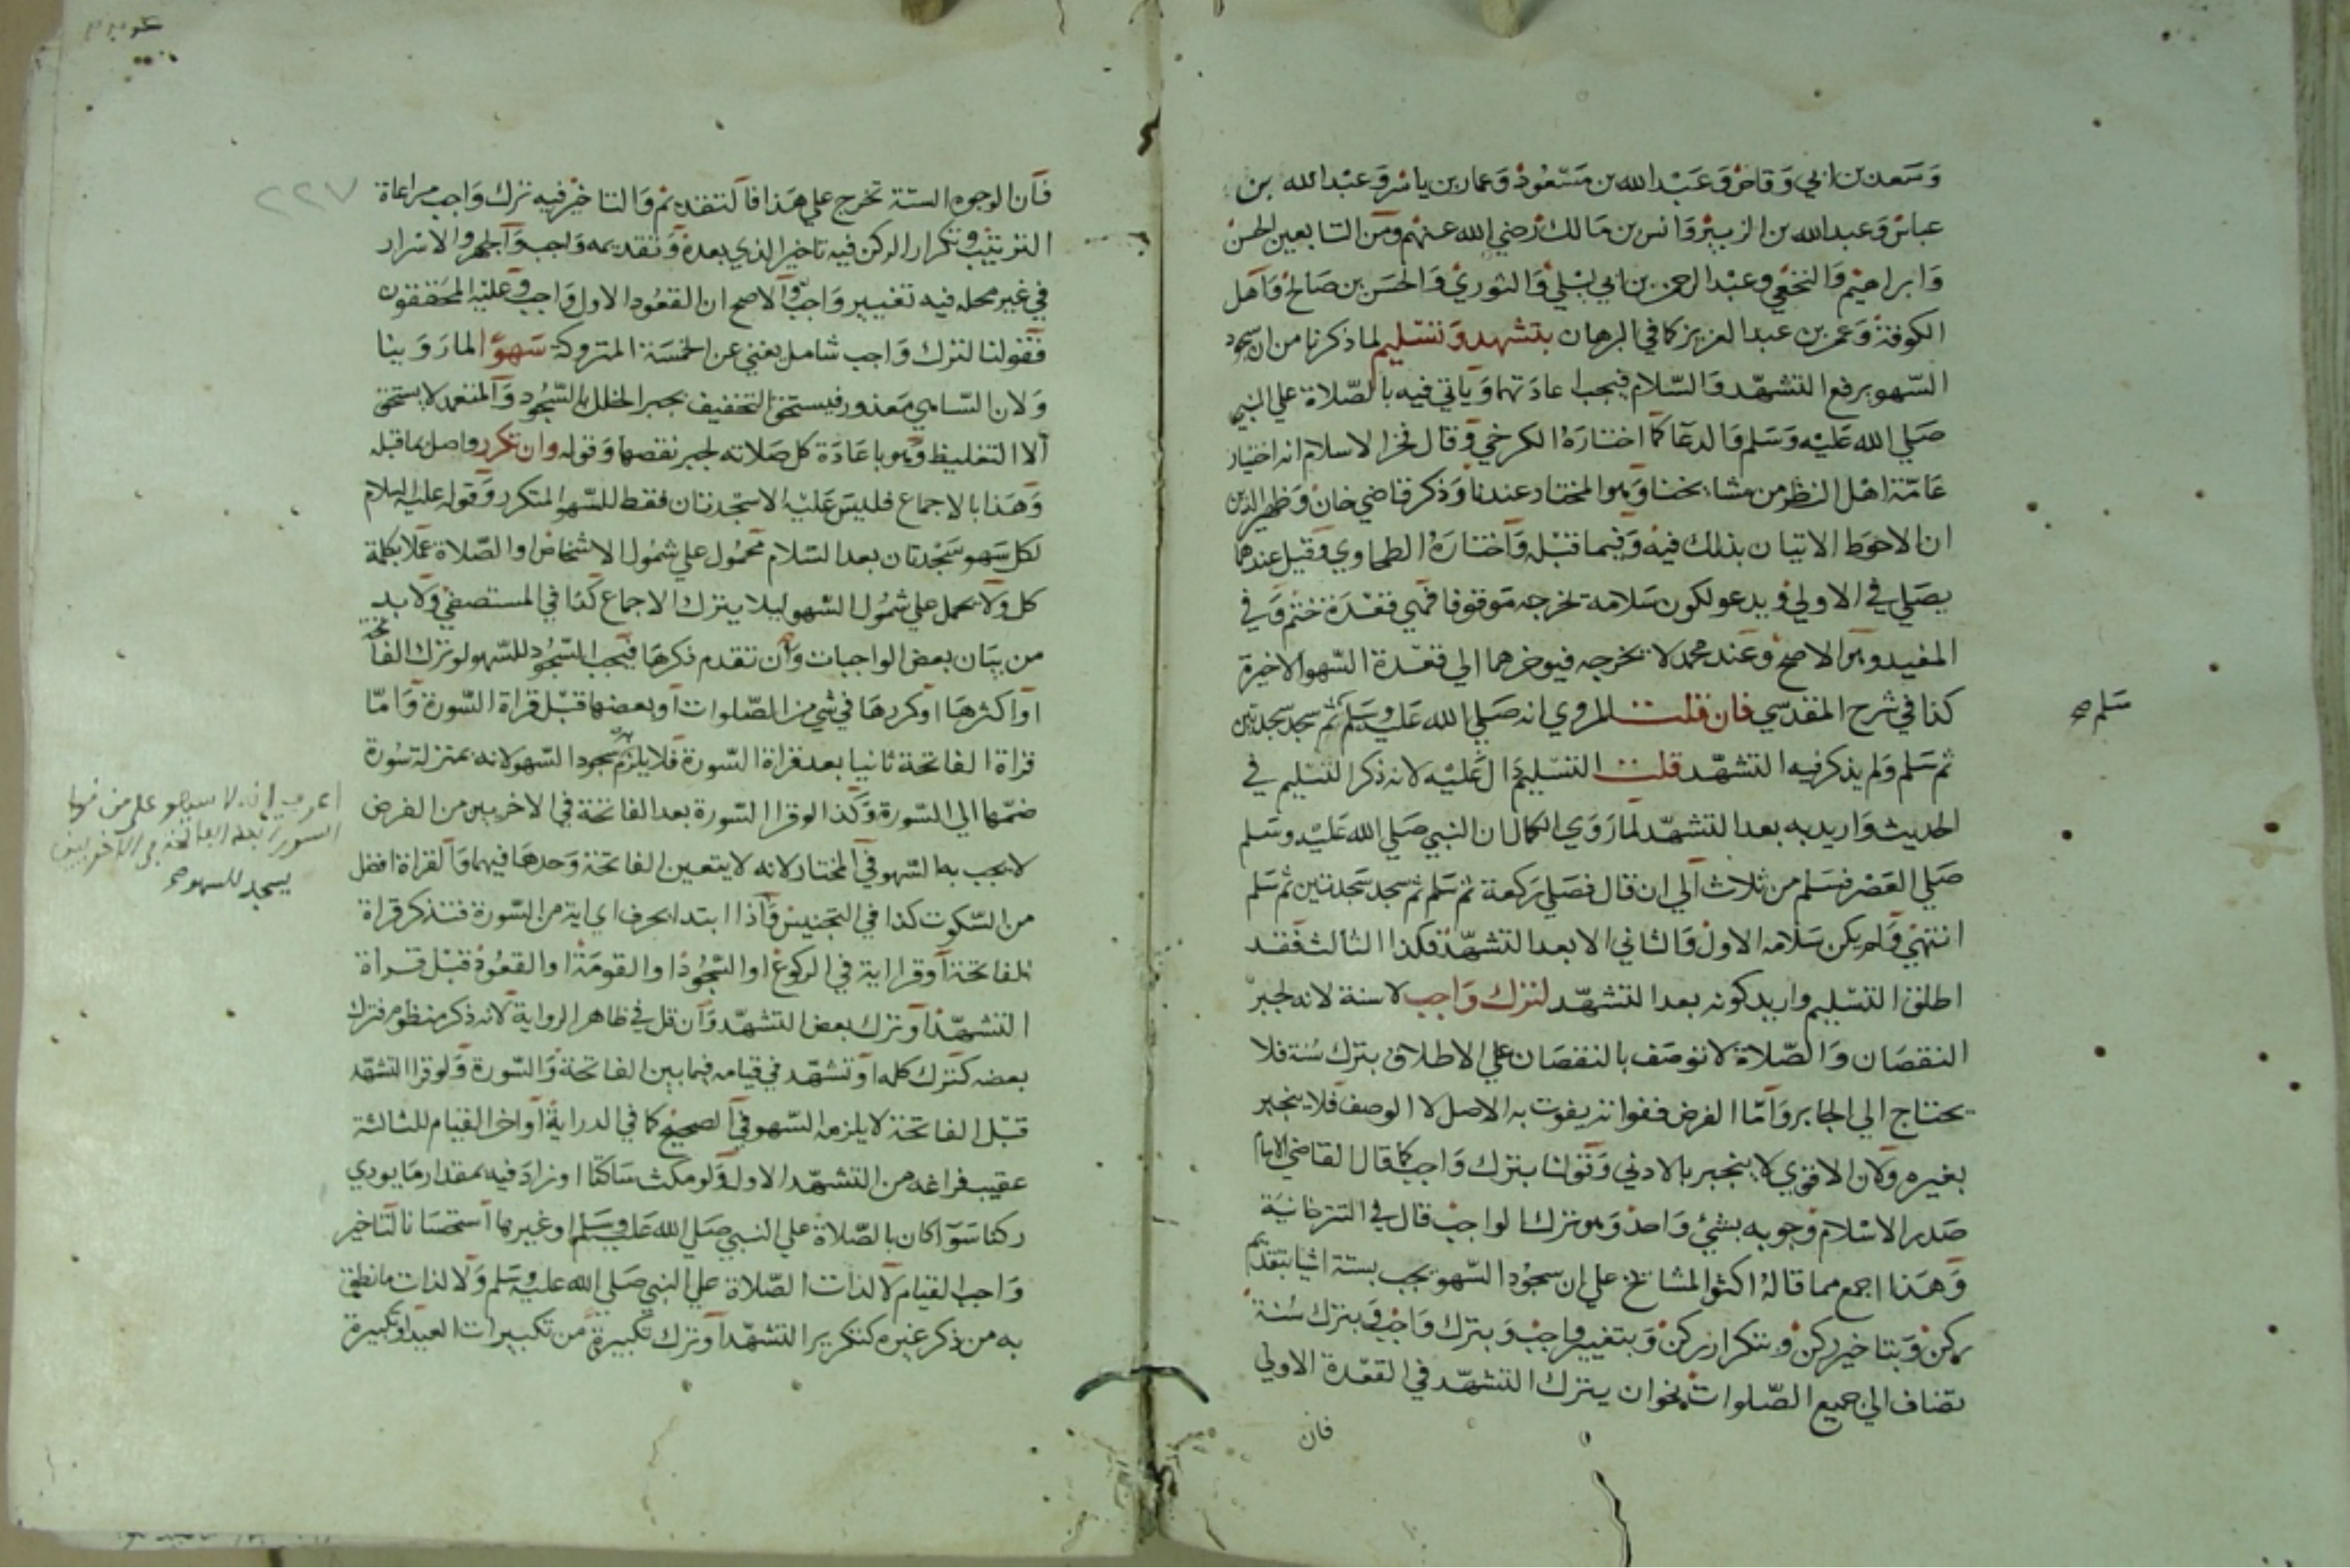 وسعد بن ابي وقاص وعبد الله بن مسعود وعمار بن ياسر وعبد الله بن
عباس وعبد الله بن الزبير وانس بن مالك رضي الله عنهم ومن التابعين الحسن
وابراهيم والنخعي وعبد الرحمن بن ابي ليلي والثوري والحسن بن صالح واهل
الكوفة وعمر بن عبد العزيز كما في البرهان بتشهد وتسليم لما ذكرنا من ان سجود
السهو يرفع التشهد والسلام فيجب اعادتهما وياتي فيه بالصلاة علي النبي
صلي الله عليه وسلم والدعا كما اختاره الكرخي وقال فخر الاسلام انه اختيار
عامة اهل النظر من مشايخنا وهو المختار عندنا وذكر قاضي خان وظهير الدين
ان الاحوط الاتيان بذلك فيه وفيما قبله واختاره الطحاوي وقيل عندهما
يصلي في الاولي ويدعو لكون سلامه تخرجه موقوفا فهي قعدة ختم وفي
المفيد وهو الاصح وعند محمد لا يخرجه فيوخرهما الي قعدة السهو الاخيرة
كذا في شرح المقدسي فان قلت المروي انه صلي الله عليه وسلم ثم سجد سجدتين
سلم صح
ثم سلم ولم يذكر فيه التشهد قلت التسليم دال عليه لانه ذكر التسليم في
الحديث واريد به بعد التشهد لما روي الكمال ان النبي صلي الله عليه وسلم
صلي العصر فسلم من ثلاث الي ان قال فصلي ركعة ثم سلم ثم سجد سجدتين ثم سلم
انتهي ولم يكن سلامه الاول والثاني الا بعد التشهد فكذا الثالث فقد
اطلق التسليم واريد كونه بعد التشهد لترك واجب لا سنة لانه لجبر
النقصان والصلاة لا توصف بالنقصان علي الاطلاق بترك سنة فلا
يحتاج الي الجابر واما الفرض ففواته يفوت به الاصل لا الوصف فلا ينجبر
بغيره ولان الاقوي لا ينجبر بالادني وقولنا بترك واجب كما قال القاضي الامام
صدر الاسلام وجوبه بشئ واحد وهو ترك الواجب قال في التترخانية
وهذا اجمع مما قاله اكثر المشايخ علي ان سجود السهو يجب بستة اشيا بتقديم
ركن وبتاخير ركن وبتكرار ركن وبتغيير واجب وبترك واجب وبترك سنة
تضاف الي جميع الصلوات نحو ان يترك التشهد في القعدة الاولي
فان
٢٢٧
فان الوجوه الستة تخرج علي هذا فالتقديم والتاخير فيه ترك واجب مراعاة
الترتيب وتكرار الركن فيه تاخير الذي بعده وتقديمه واجب والجهر والاسرار
في غير محله فيه تغيير واجب والاصح ان القعود الاول واجب وعليه المحققون
فقولنا لترك واجب شامل يغني عن الخمسة المتروكة سهوا لما روينا
ولان الساهي معذور فيستحق التخفيف بجبر الخلل بالسجود والمتعمد لا يستحق
الا التغليظ وهو باعادة كل صلاته لجبر نقصها وقوله وان تكرر واصل بما قبله
وهذا بالاجماع فليس عليه الا سجدتان فقط للسهو المتكرر وقوله عليه السلام
لكل سهو سجدتان بعد السلام محمول علي شمول الاشخاص او الصلاة عملا بكلمة
كل ولا يحمل علي شمول السهو ليلا يترك الاجماع كذا في المستصفي ولا بد
من بيان بعض الواجبات وان تقدم ذكرها فيجب السجود للسهو لو ترك الفاتحة
او اكثرها او كررها في شي من الصلوات او بعضها قبل قراة السورة واما
قراة الفاتحة ثانيا بعد قراة السورة فلا يلزم به سجود السهو لانه بمنزلة سورة
ضمها الي السورة وكذا لو قرا السورة بعد الفاتحة في الاخريين من الفرض
لا يجب به السهو في المختار لانه لا يتعين الفاتحة وحدها فيهما والقراة افضل
من السكوت كذا في التجنيس واذا ابتدا بحرف اي اية من السورة فتذكر قراة
الفاتحة او قرا اية في الركوع او السجود او القومة او القعود قبل قراة
التشهد او ترك بعض التشهد وان قل في ظاهر الرواية لانه ذكر منظوم فترك
بعضه كترك كله او تشهد في قيامه فيما بين الفاتحة والسورة ولو قرا التشهد
قبل الفاتحة لا يلزمه السهو في الصحيح كما في الدراية او اخر القيام للثالثة
عقيب فراغه من التشهد الاول ولو مكث ساكتا او زاد فيه بمقدار ما يودي
ركنا سوا كان بالصلاة علي النبي صلي الله عليه وسلم او غيرها استحسانا لتاخير
واجب القيام لا لذات الصلاة علي النبي صلي الله عليه وسلم ولا لذات ما نطق
به من ذكر غيره كتكرير التشهد او ترك تكبيرة من تكبيرات العيد او تكبيرة
اعرف انه لا سهو علي من قرا
السورة بعد الفاتحة في الاخريين
يسجد للسهو صح